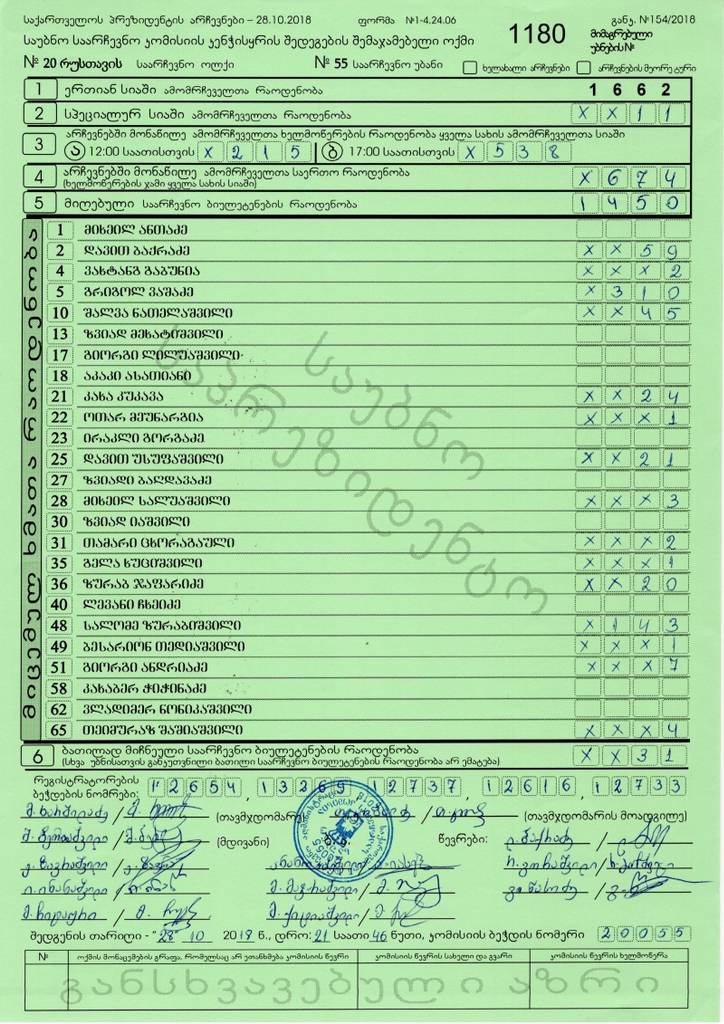 საქართველოს პრეზიდენტის არჩევნები – 28.10.2018 ფორმა №1-4.24.06 განკ. №154/2018
საუბნო საარჩევნო კომისიის კენჭისყრის შედეგების შემაჯამებელი ოქმი 1180 მიმაგრებული უბნების №
№ 20 რუსთავის საარჩევნო ოლქი № 55 საარჩევნო უბანი ხელახალი არჩევნები არჩევნების მეორე ტური
1 ერთიან სიაში ამომრჩეველთა რაოდენობა 1 6 6 2
2 სპეციალურ სიაში ამომრჩეველთა რაოდენობა X X 1 1
3 არჩევნებში მონაწილე ამომრჩეველთა ხელმოწერების რაოდენობა ყველა სახის ამომრჩეველთა სიაში
ა 12:00 საათისთვის X 2 1 5 ბ 17:00 საათისთვის X 5 3 8
4 არჩევნებში მონაწილე ამომრჩეველთა საერთო რაოდენობა X 6 7 4
(ხელმოწერების ჯამი ყველა სახის სიაში)
5 მიღებული საარჩევნო ბიულეტენების რაოდენობა 1 4 5 0
მიცემულ ხმათა რაოდენობა
1 მიხეილ ანთაძე
2 დავით ბაქრაძე X X 5 9
4 ვახტანგ გაბუნია X X X 2
5 გრიგოლ ვაშაძე X 3 1 0
10 შალვა ნათელაშვილი X X 4 5
13 ზვიად მეხატიშვილი
17 გიორგი ლილუაშვილი
18 აკაკი ასათიანი
21 კახა კუკავა X X 2 4
22 ოთარ მეუნარგია X X X 1
23 ირაკლი გორგაძე
25 დავით უსუფაშვილი X X 2 1
27 ზვიადი ბაღდავაძე
28 მიხეილ სალუაშვილი X X X 3
30 ზვიად იაშვილი
31 თამარი ცხორაგაული X X X 2
35 გელა ხუციშვილი X X X 1
36 ზურაბ ჯაფარიძე X X 2 0
40 ლევანი ჩხეიძე
48 სალომე ზურაბიშვილი X 1 4 3
49 ბესარიონ თედიაშვილი X X X 1
51 გიორგი ანდრიაძე X X X 7
58 კახაბერ ჭიჭინაძე
62 ვლადიმერ ნონიკაშვილი
65 თეიმურაზ შაშიაშვილი X X X 4
საუბნო
საპრეზიდენტო
6 ბათილად მიჩნეული საარჩევნო ბიულეტენების რაოდენობა X X 3 1
(სხვა უბნისათვის განკუთვნილი ბათილი საარჩევნო ბიულეტენების რაოდენობა არ ემატება)
რეგისტრატორების
ბეჭდების ნომრები: 12654, 13265, 12737, 12616, 12733
(თავმჯდომარე) (თავმჯდომარის მოადგილე)
(მდივანი) წევრები:
შედგენის თარიღი - "28" 10 2018 წ., დრო: 21 საათი 46 წუთი, კომისიის ბეჭდის ნომერი 20055
№ ოქმის მონაცემების გრაფა, რომელსაც არ ეთანხმება კომისიის წევრი კომისიის წევრის სახელი და გვარი კომისიის წევრის ხელმოწერა
განსხვავებული აზრი